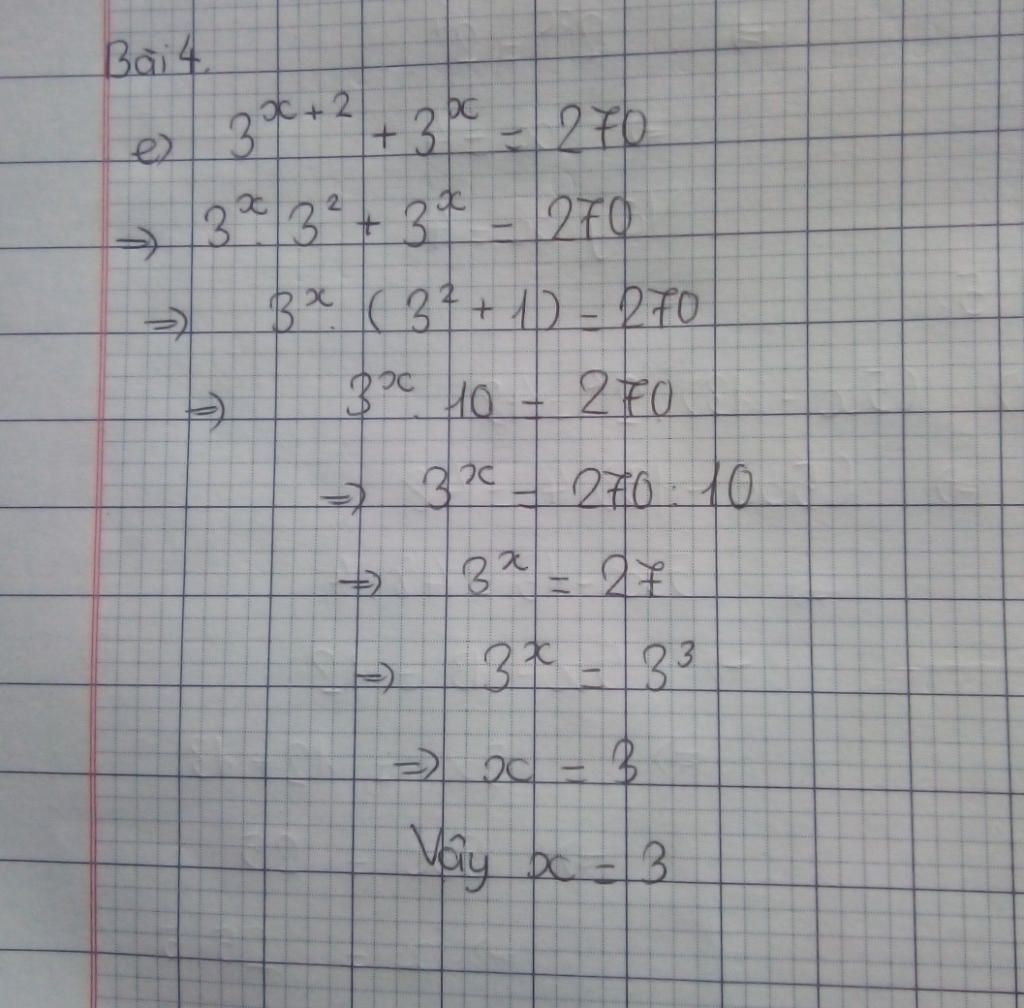 Bài 4.
e) 3^{x+2} + 3^x = 270
=> 3^x. 3^2 + 3^x = 270
=> 3^x. (3^2 + 1) = 270
=> 3^x. 10 = 270
=> 3^x = 270 : 10
=> 3^x = 27
=> 3^x = 3^3
=> x = 3
Vậy x = 3